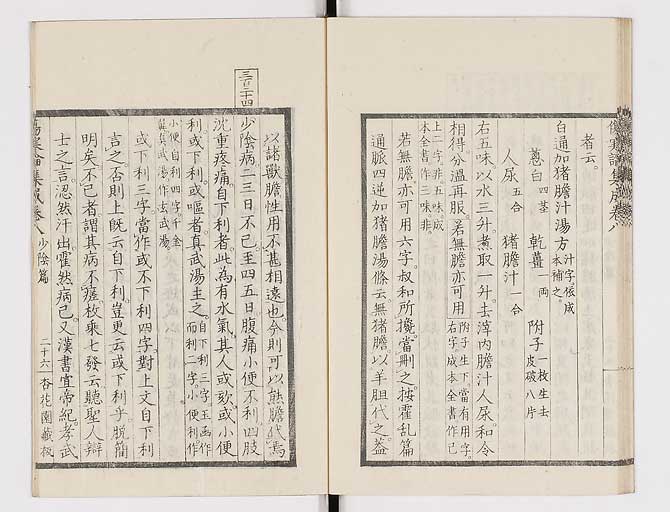 者云。
白通加猪膽汁湯方 汁字。依成
本補之。
葱白 四茎 乾薑 一両 附子 一枚生去
皮破八片
人尿 五合 猪膽汁 一合
右五味以水三升。煮取一升。去滓内膽汁人尿。和令
相得。分温再服。若無膽亦可用 附子生下。當有用字。
右字成本全書作已
上二字。非。五味成
本全書作三味非。
若無膽亦可用六字。叔和所攙。當刪之。按霍乱篇
通脈四逆加猪膽湯條云。無猪膽以羊胆代之。蓋
以諸獣膽性用不甚相遠也。今則可以熊膽代焉
三百二十四
少陰病。二三日不已。至四五日。腹痛小便不利。四肢
沈重疼痛。自下利者。此為有水氣。其人或欬。或小便
利。或下利。或嘔者。真武湯主之。 自下利三字玉函作
而利二字。小便利作
小便自利四字千金
翼真武湯作玄武湯。
或下利三字。當作或不下利四字。對上文自下利
言之。否則上既云自下利。豈更云或下利乎。脱簡
明矣。不已者。謂其病不瘥。枚乗七發云。聽聖人辯
士之言。涊然汗出。霍然病已。又漢書宣帝紀。孝武
傷寒論集成卷八 少陰篇 二十六 杏花園藏板